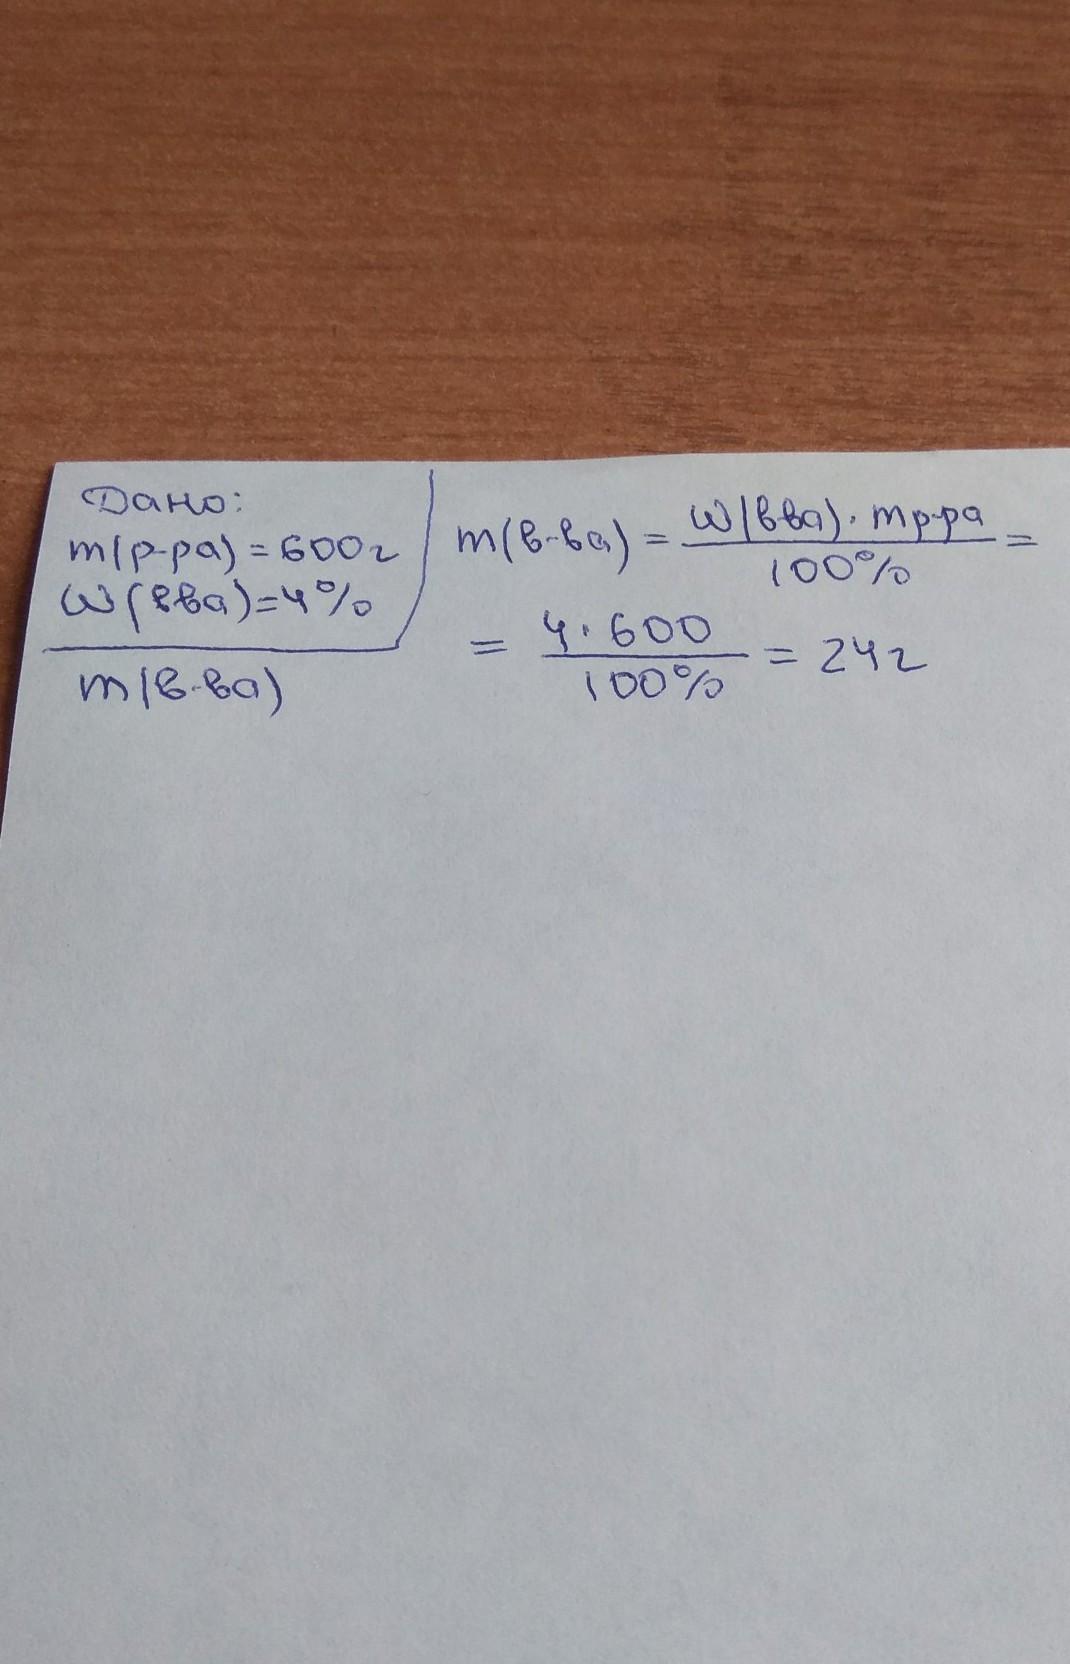 Дано:
m(р-ра) = 600г
W(вва)=4%
m(в-ва)
m(в-ва) = W(вва) · mр-ра / 100% =
= 4 · 600 / 100% = 24г